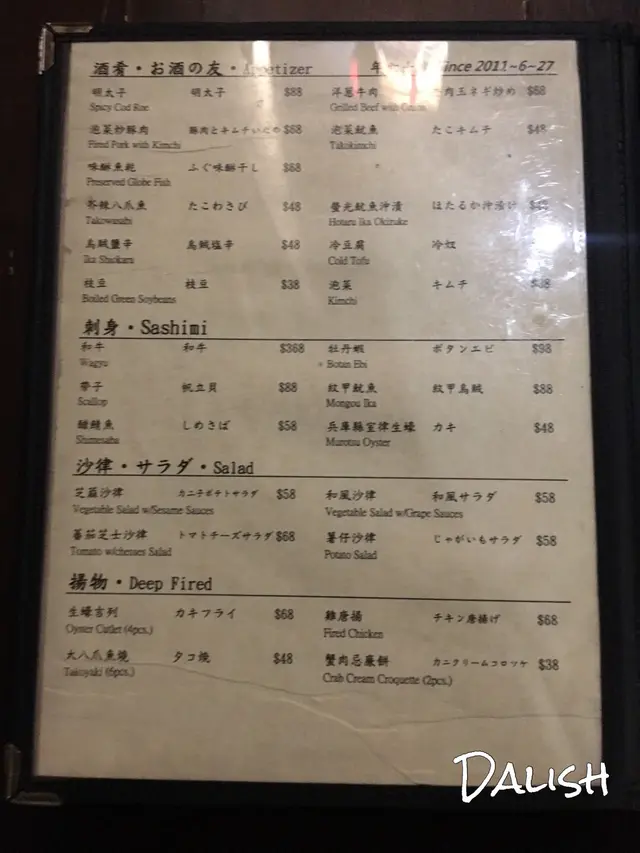 酒肴・お酒の友・Appetizer Since 2011~6~27
明太子 明太子 $88 洋蔥牛肉 牛肉玉ネギ炒め $68
Spicy Cod Roe Grilled Beef with Onion
泡菜炒豚肉 豚肉とキムチいため $68 泡菜魷魚 たこキムチ $48
Fired Pork with Kimchi Takokimchi
味醂魚乾 ふぐ味醂干し $68
Preserved Globe Fish
芥辣八爪魚 たこわさび $48 螢光魷魚沖漬 ほたるか沖漬け $48
Takowasabi Hotaru Ika Okizuke
烏賊鹽辛 烏賊塩辛 $48 冷豆腐 冷奴
Ika Shiokara Cold Tofu
枝豆 枝豆 $38 泡菜 キムチ
Boiled Green Soybeans Kimchi
刺身・Sashimi
和牛 和牛 $368 牡丹蝦 ボタンエビ $98
Wagyu Botan Ebi
帶子 帆立貝 $88 紋甲魷魚 紋甲烏賊 $88
Scallop Mongou Ika
醋鯖魚 しめさば $58 兵庫縣室律生蠔 カキ $48
Shimesaba Murotsu Oyster
沙律・サラダ・Salad
芝蔴沙律 カニ子ポテトサラダ $58 和風沙律 和風サラダ $58
Vegetable Salad w/Sesame Sauces Vegetable Salad w/Grape Sauces
蕃茄芝士沙律 トマトチーズサラダ $68 薯仔沙律 じゃがいもサラダ $58
Tomato w/cheeses Salad Potato Salad
揚物・Deep Fired
生蠔吉列 カキフライ $68 雞唐揚 チキン唐揚げ $68
Oyster Cutlet (4pcs.) Fired Chicken
大八爪魚燒 タコ燒 $48 蟹肉忌廉餅 カニクリームコロッケ $38
Takoyaki (6pcs.) Crab Cream Croquette (2pcs.)
DALISH